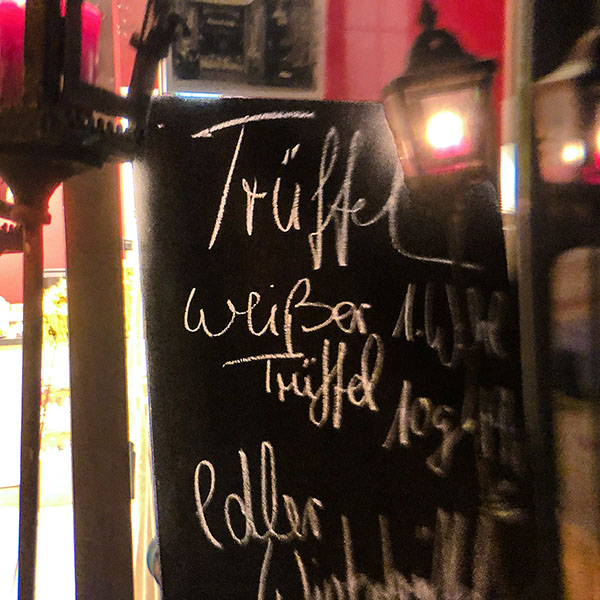 Trüffel
weißer 1. Wahl
Trüffel 10g
edler